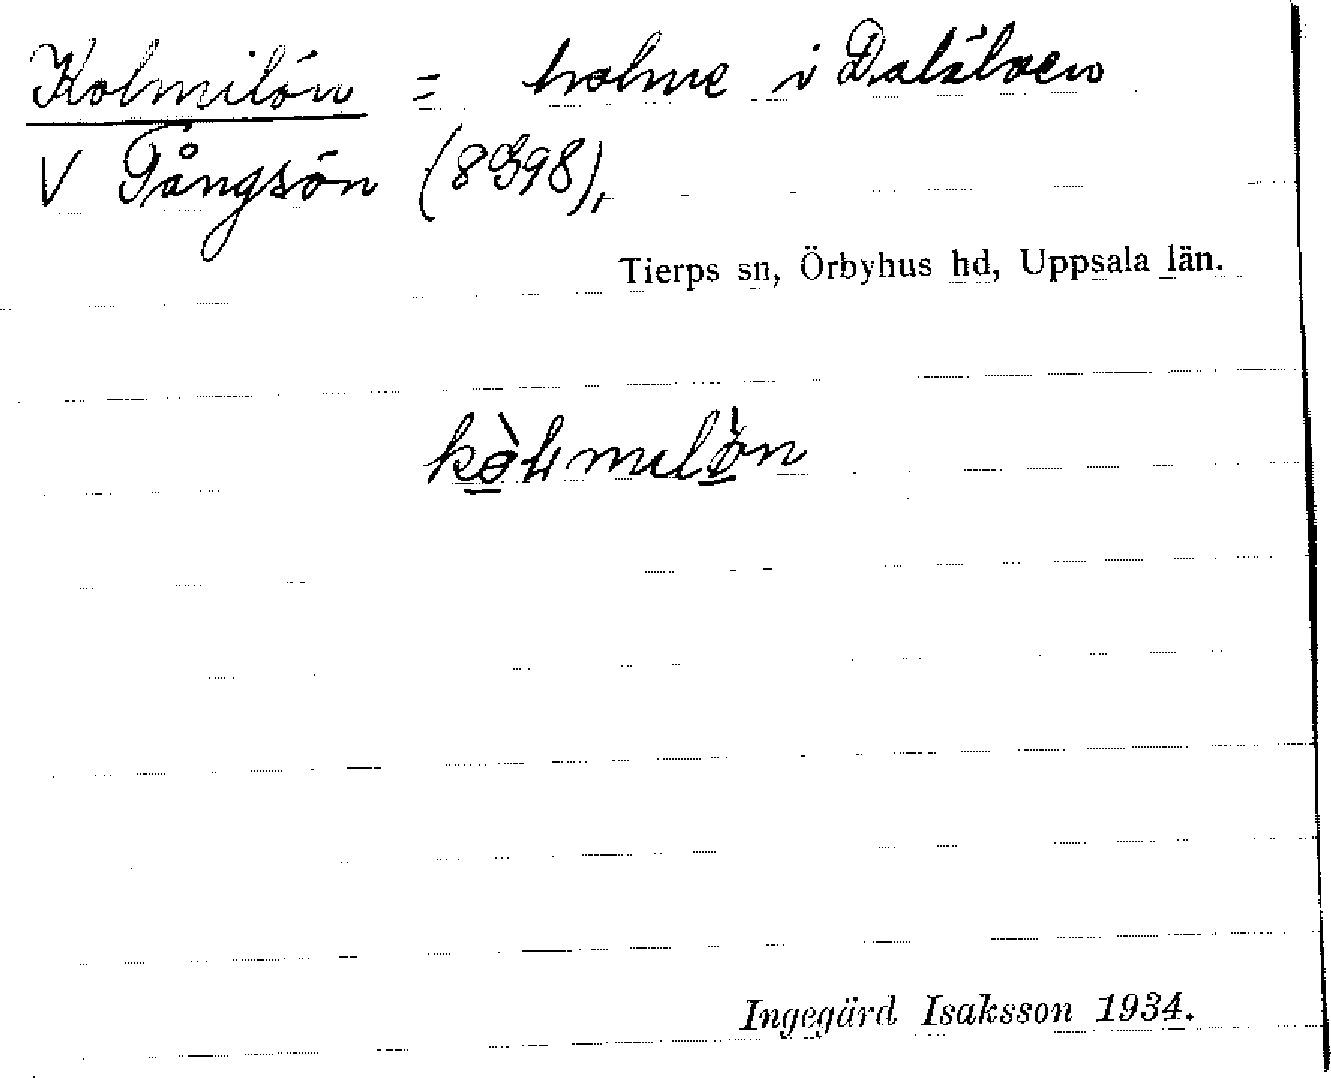 Kolmilön = holme i Dalälven
V Tångsön (8398),
Tierps sn, Örbyhus hd, Uppsala län.
Ingegärd Isaksson 1934.